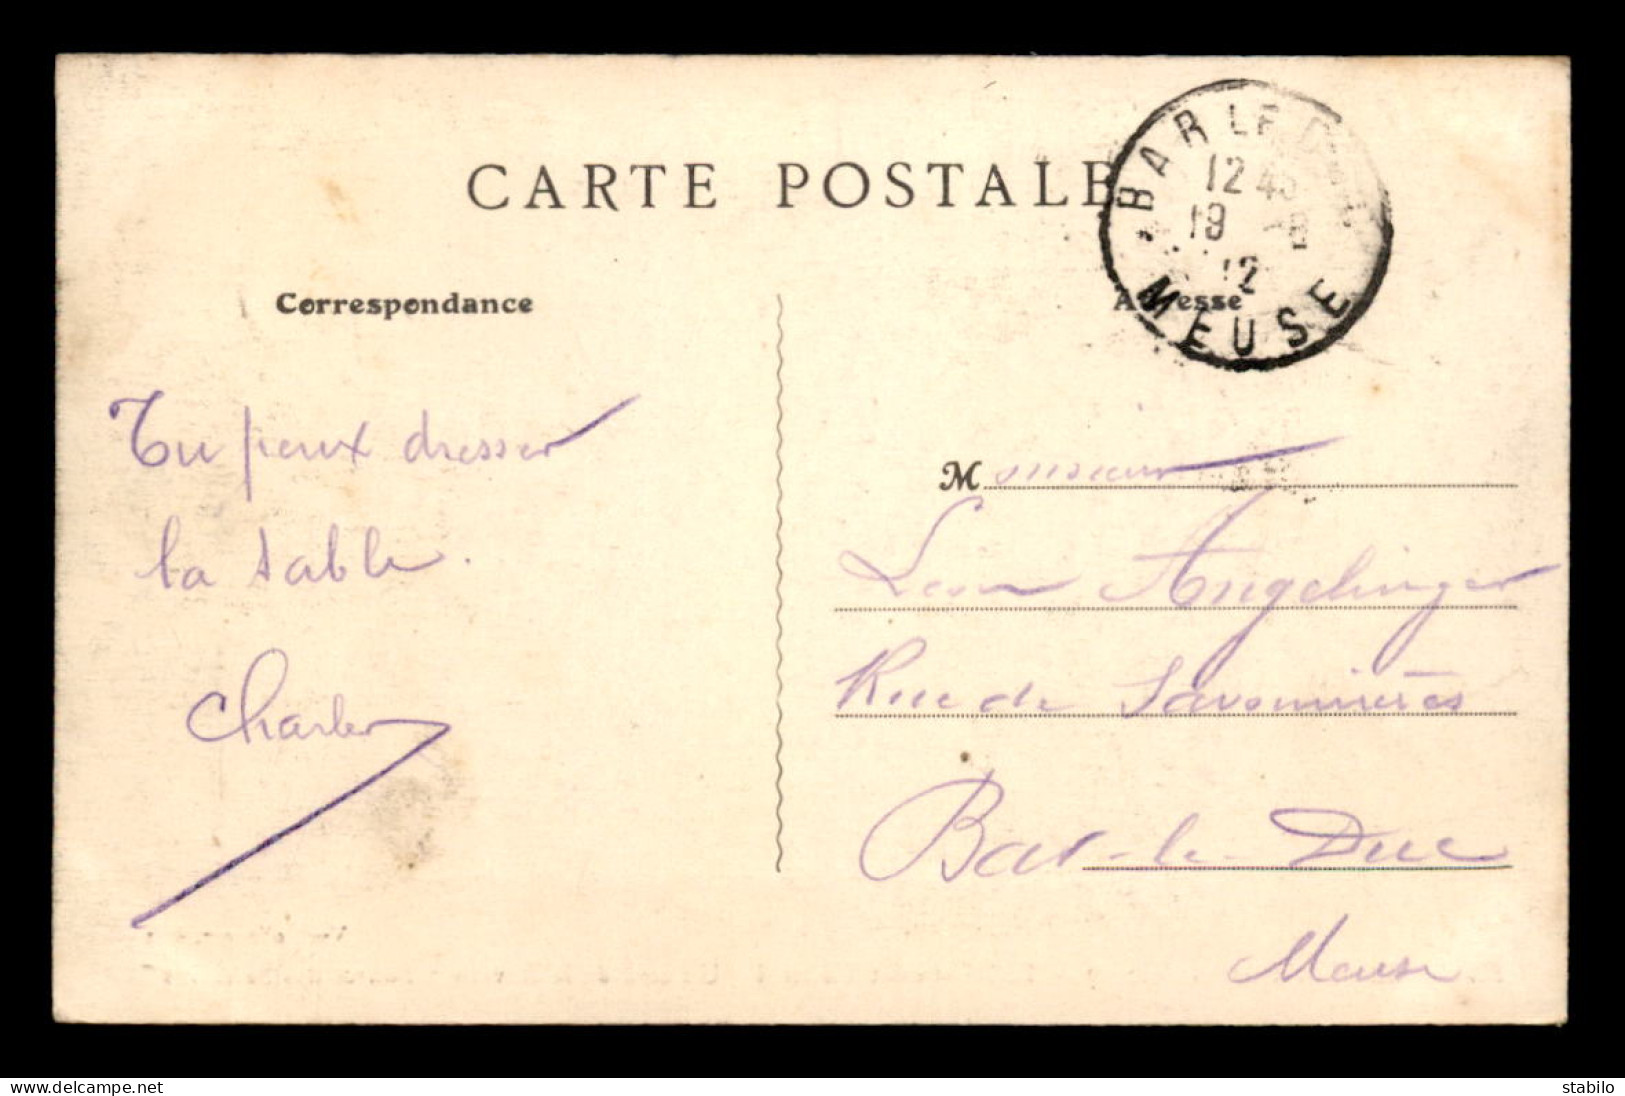 CARTE POSTALE
BAR LE DUC
12 45
19 -8
12
MEUSE
Correspondance
Adresse
Tu peux dresser
la table.
Charles
Monsieur
Léon Angelinger
Rue de Savonnières
Bar-le-Duc
Meuse
www.delcampe.net
stabilo